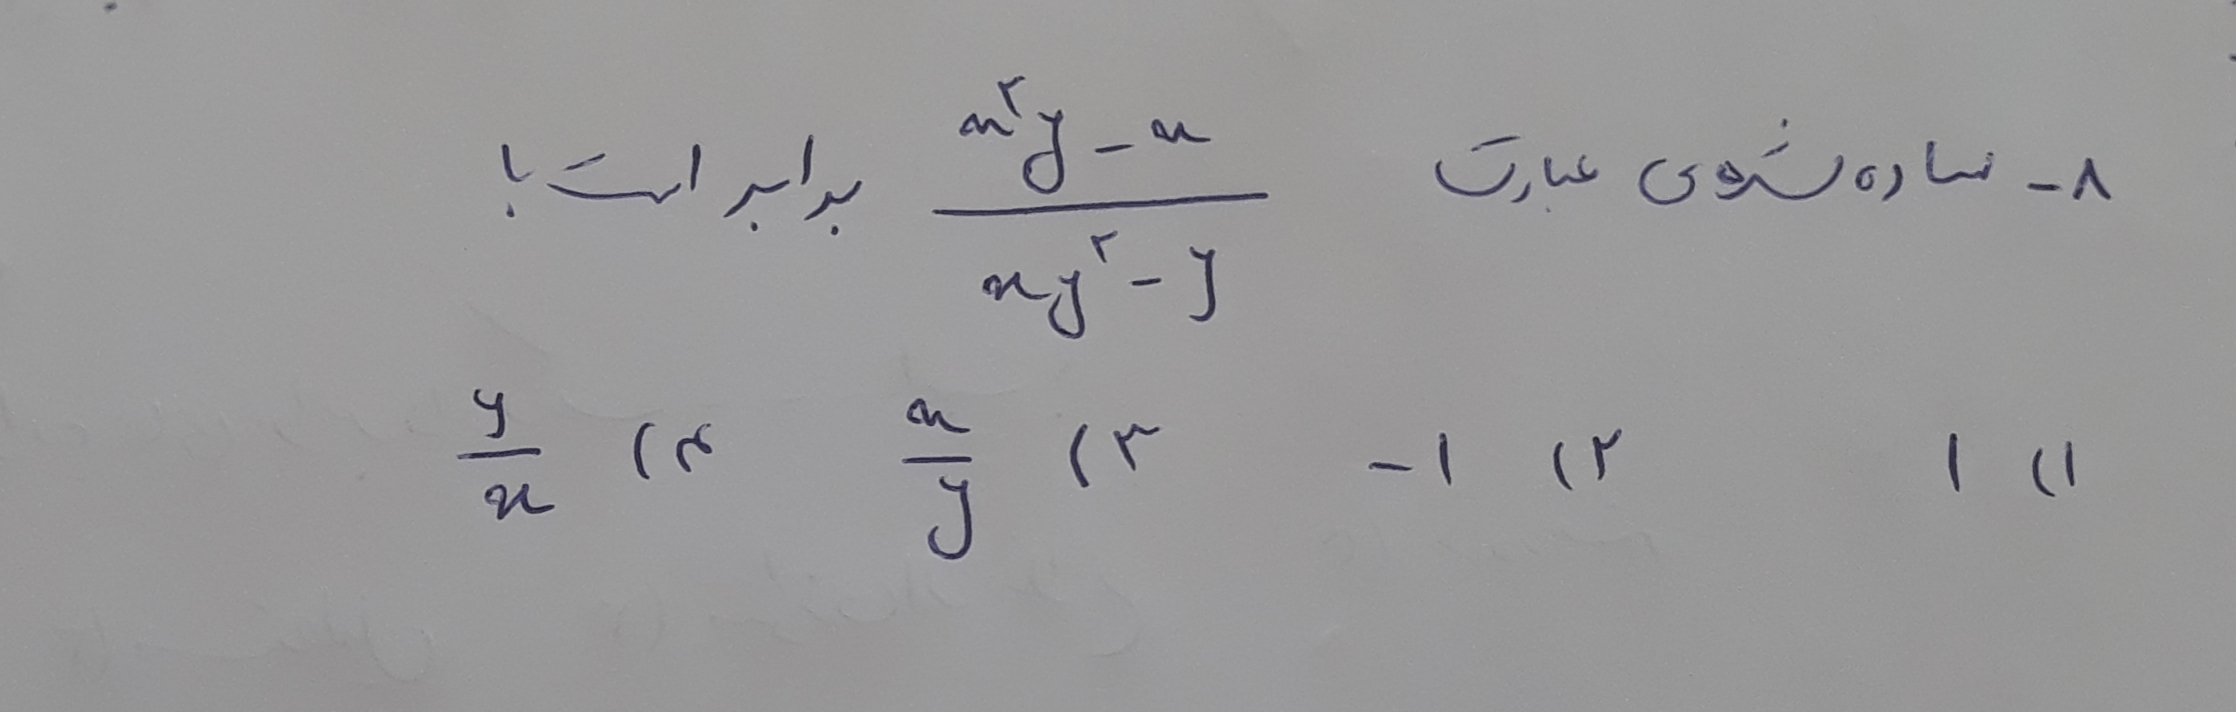 ۸- ساده شده‌ی عبارت (x^۲y - x)/(xy^۲ - y) برابر است با
۱) ۱ ۲) -۱ ۳) x/y ۴) y/x